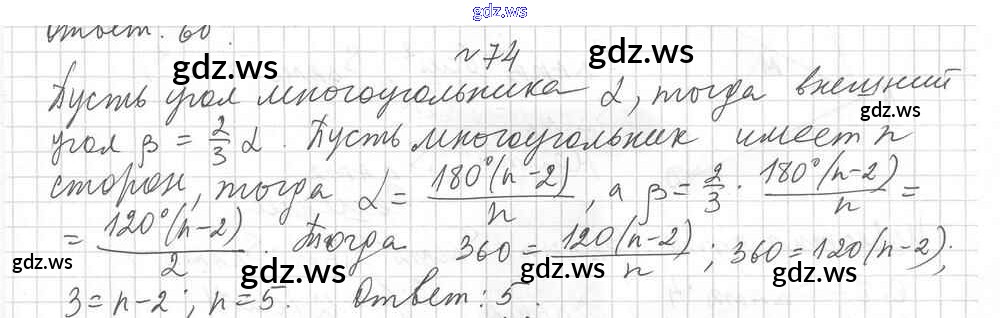 gdz.ws
Ответ: 60.
№74
Пусть угол многоугольника α, тогда внешний
угол β = 2/3 α. Пусть многоугольник имеет n
сторон, тогда α = 180°(n-2)/n, а β = 2/3 · 180°(n-2)/n =
= 120°(n-2)/2. Тогда 360 = 120(n-2)/n; 360 = 120(n-2);
3 = n-2; n = 5. Ответ: 5.
gdz.ws
gdz.ws
gdz.ws
gdz.ws
gdz.ws
gdz.ws
gdz.ws
gdz.ws
gdz.ws